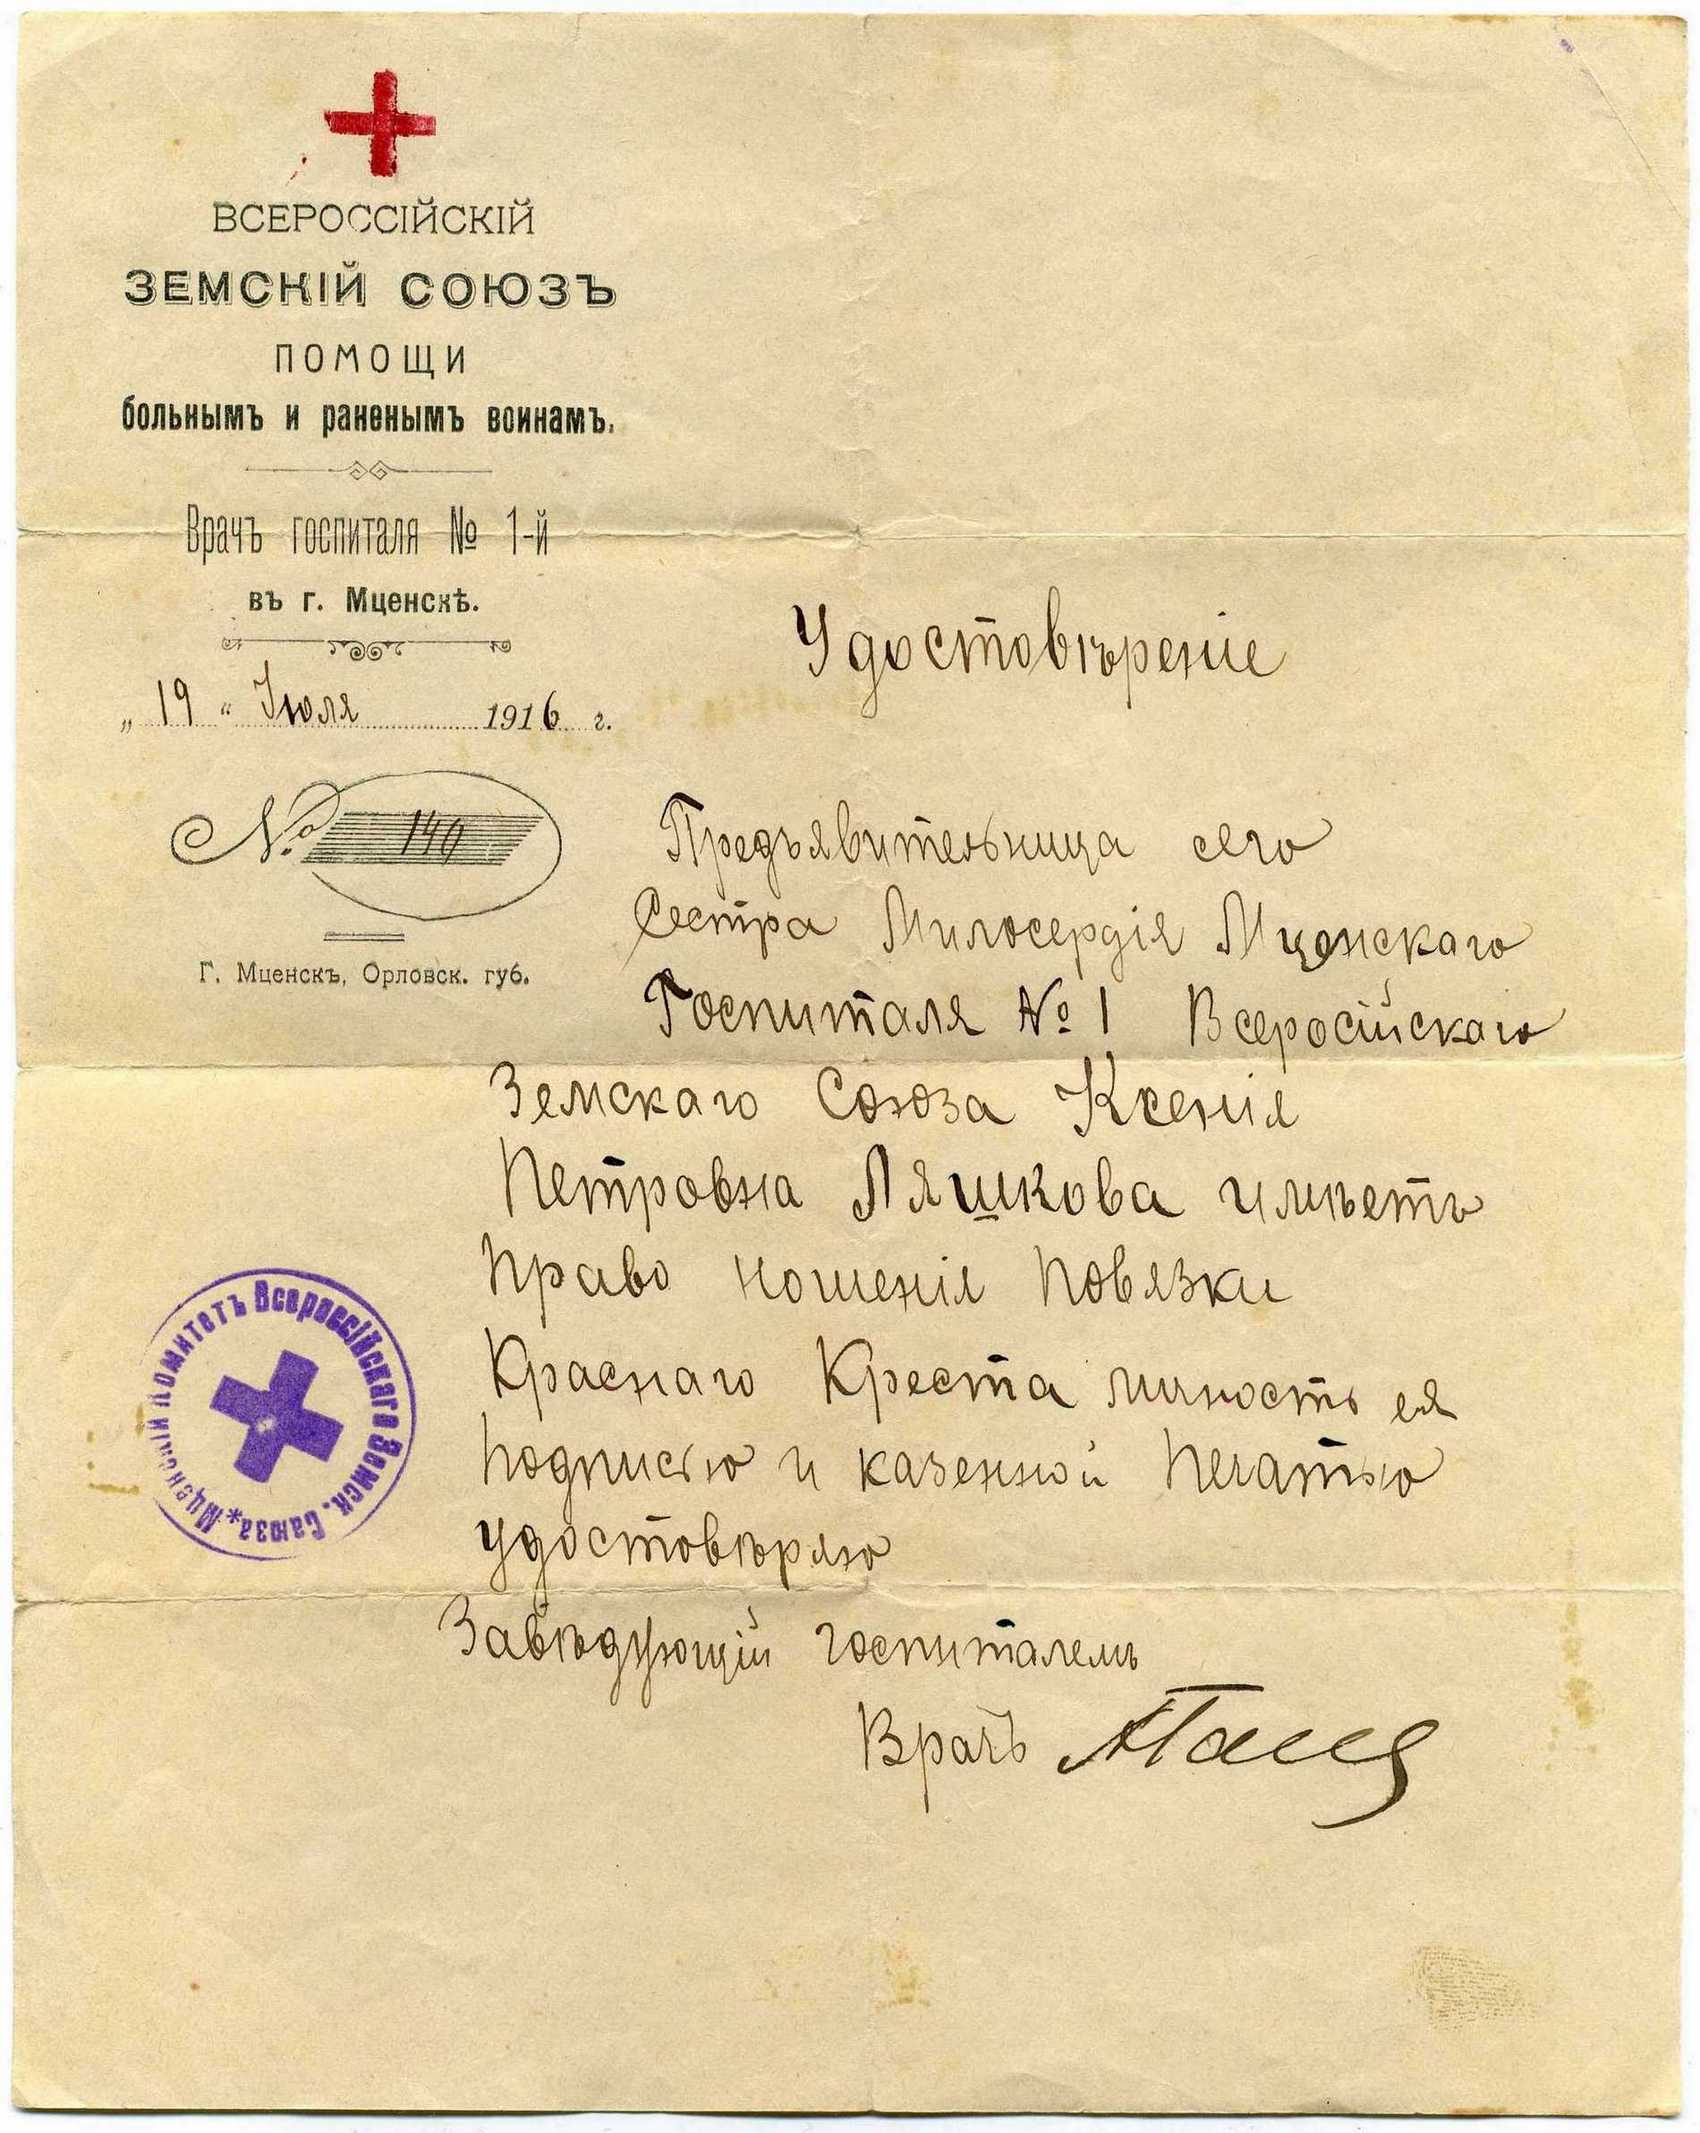 ВСЕРОССІЙСКІЙ
ЗЕМСКІЙ СОЮЗЪ
ПОМОЩИ
больнымъ и раненымъ воинамъ.
Врачъ госпиталя № 1-й
въ г. Мценскѣ.
„ 19 “ Іюля 1916 г.
№ 140
Г. Мценскъ, Орловск. губ.
Удостовѣреніе
Предъявительница сего
Сестра Милосердія Мценскаго
Госпиталя № 1 Всеросійскаго
Земскаго Союза Ксенія
Петровна Ляшкова имѣетъ
право ношенія повязки
Краснаго Креста личность ея
подписью и казенной печатью
удостовѣряю
Завѣдующій госпиталемъ
Врачъ
Мценскій Комитетъ Всероссійскаго Земск. Союза.*